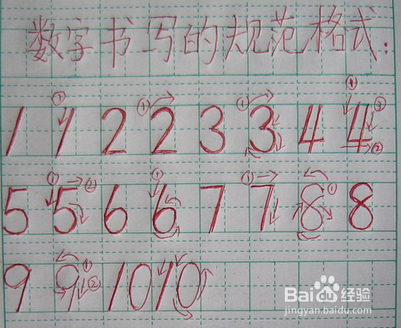 数字书写的规范格式:
1 1 2 2 3 3 4 4
5 5 6 6 7 7 8 8
9 9 10 10
Bai度经验
jingyan.baidu.com